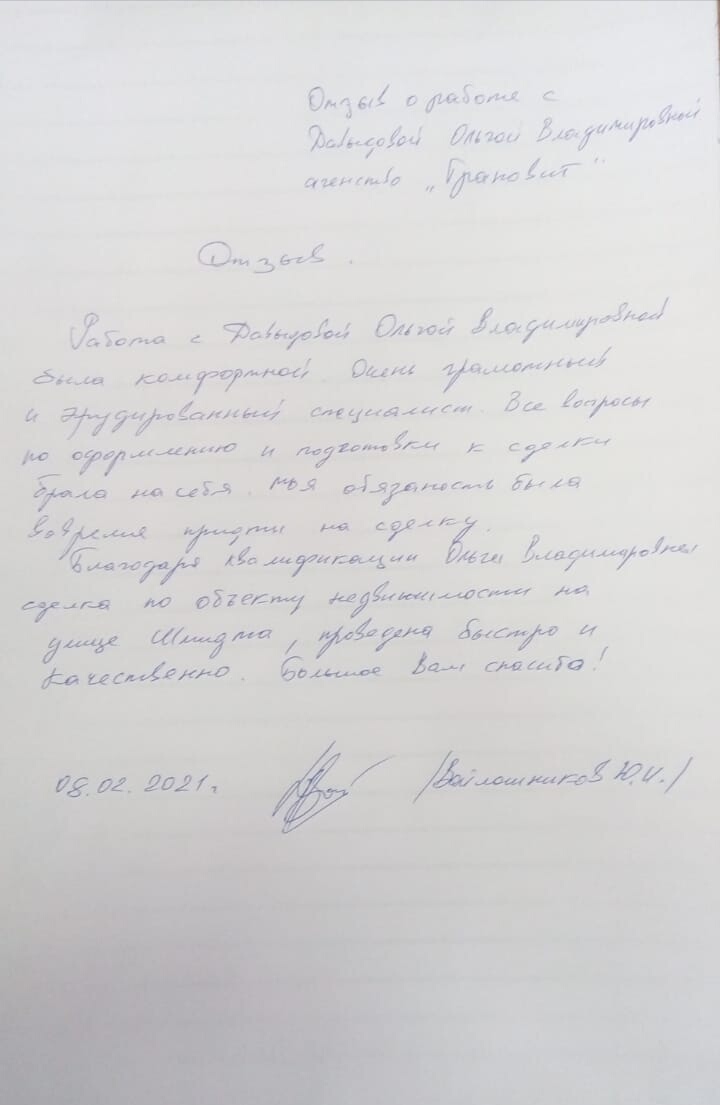 Отзыв о работе с
Давыдовой Ольгой Владимировной
агенство „Грановит"
Отзыв.
Работа с Давыдовой Ольгой Владимировной
была комфортной. Очень грамотный
и эрудированный специалист. Все вопросы
по оформлению и подготовки к сделки
брала на себя. Моя обязаность была
вовремя придти на сделку.
Благодаря квалификации Ольги Владимировней
сделка по объекту недвижимости на
улице Шмидта, проведена быстро и
качественно. Большое Вам спасиба!
08.02.2021г. /Войлошников Ю.И./